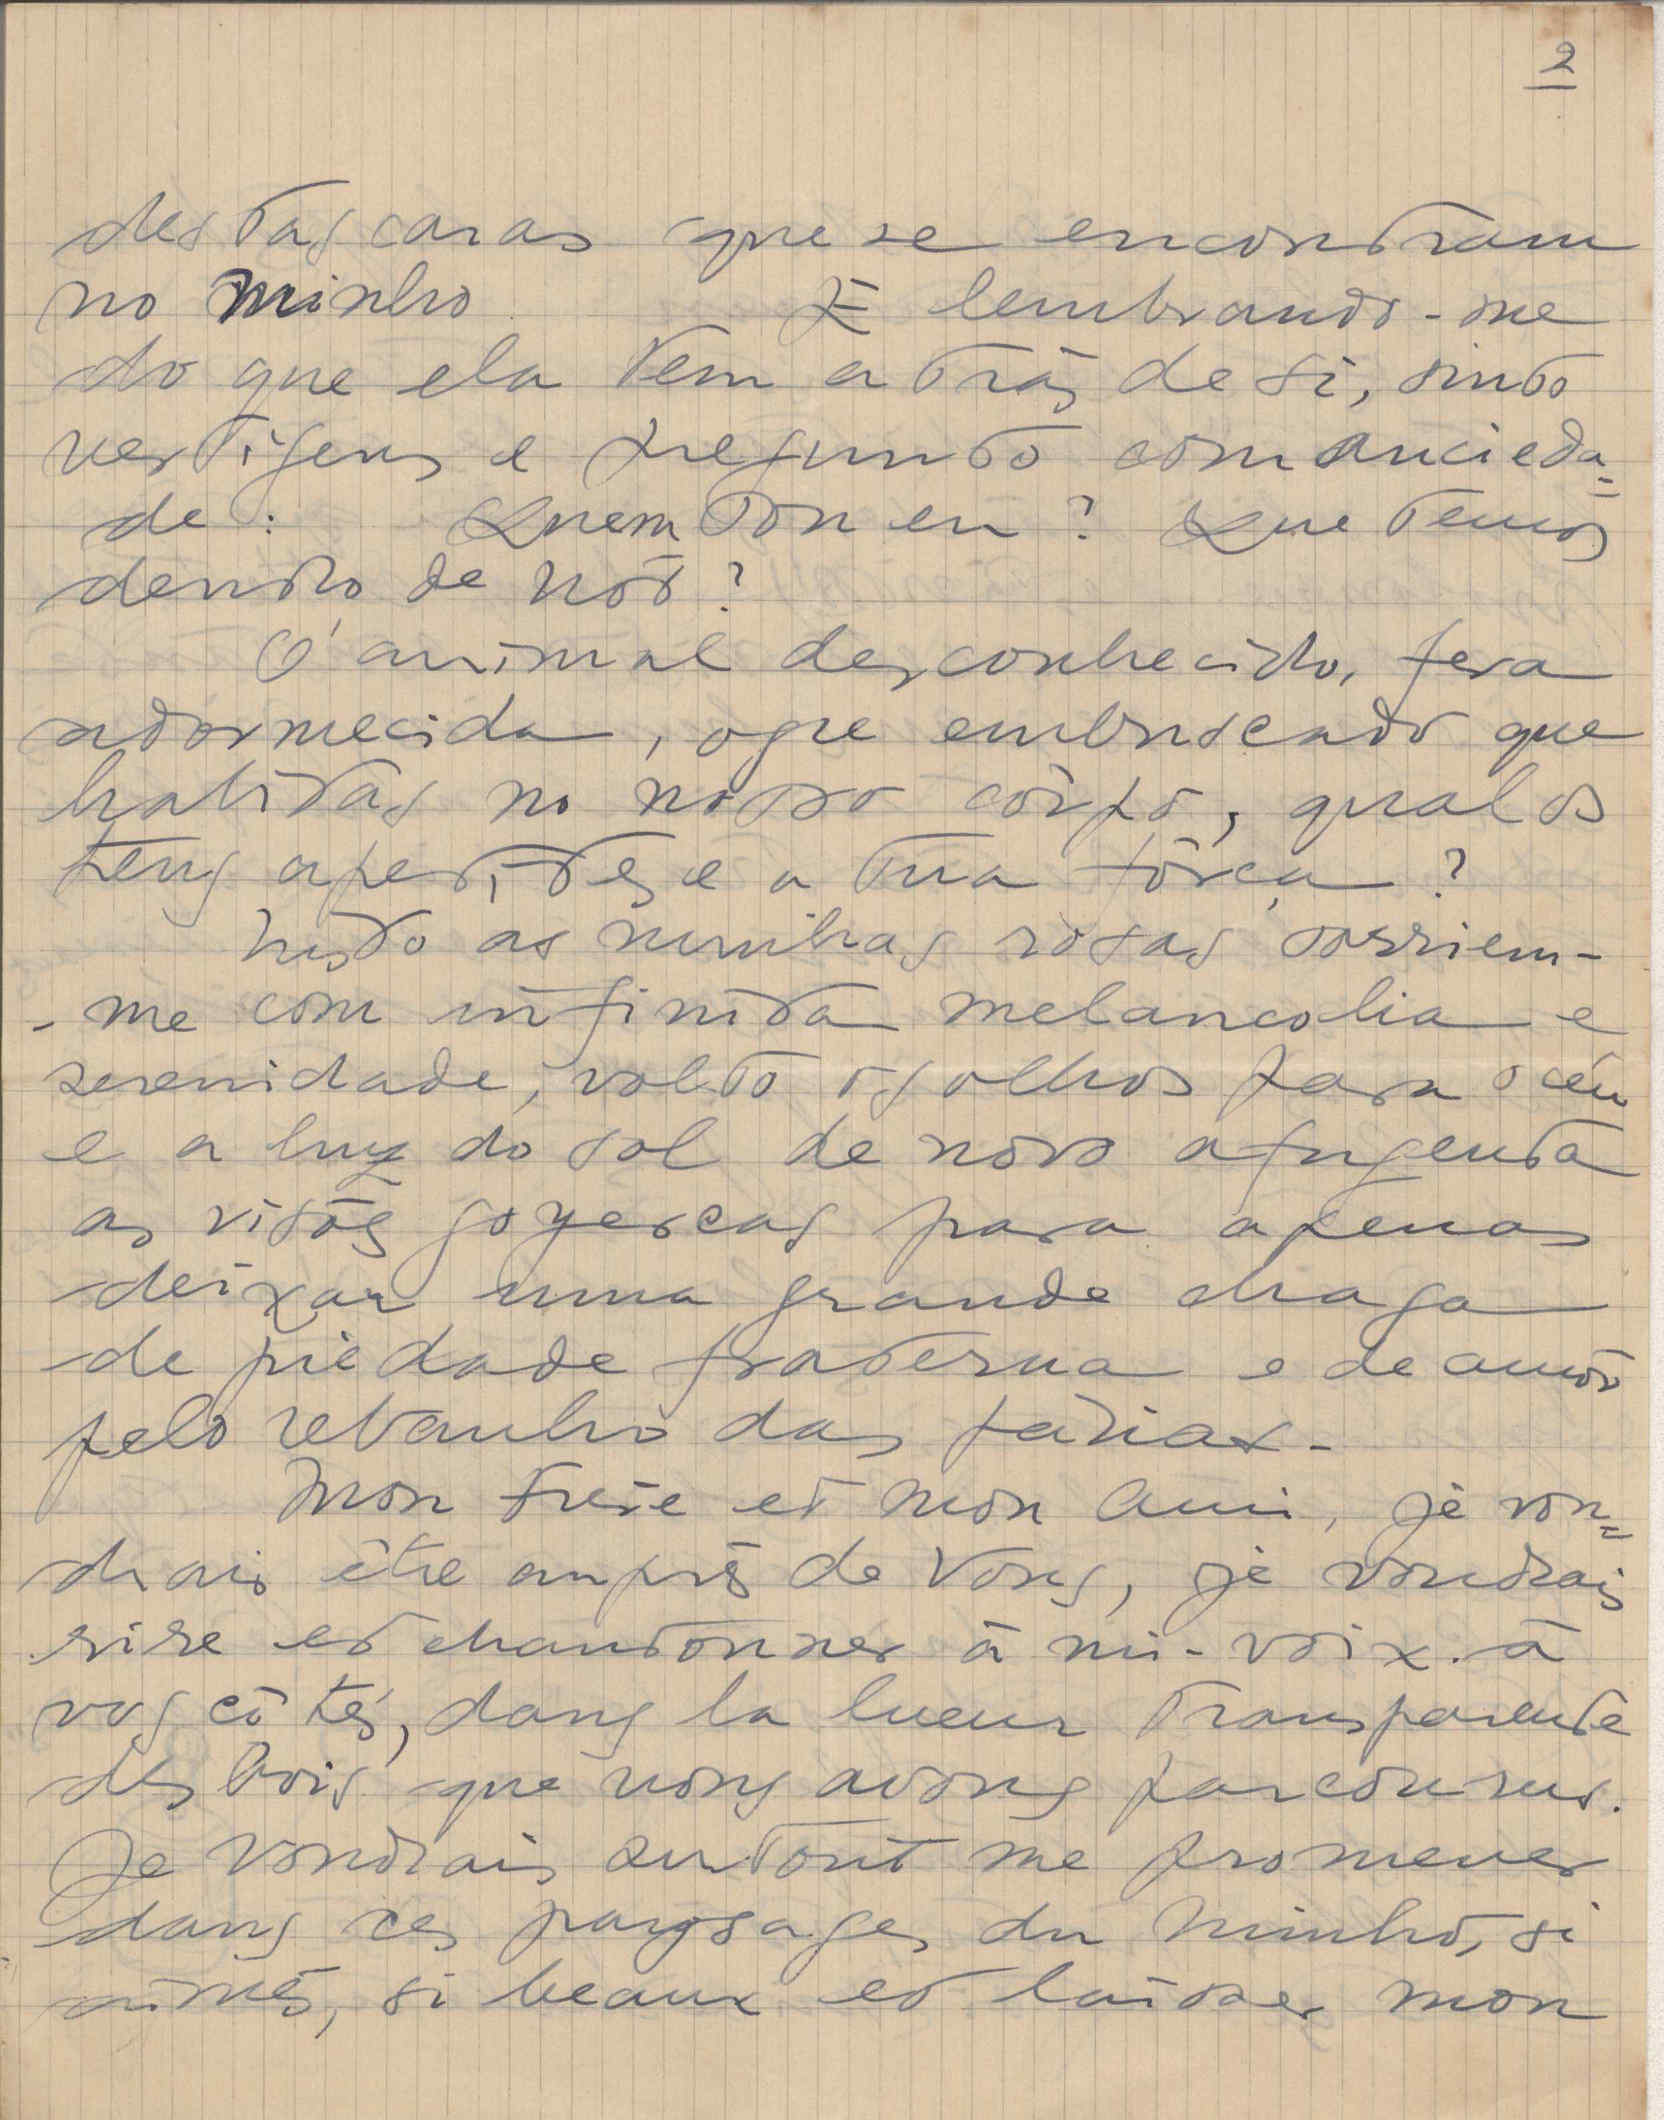 2
destas caras que se encontram
no Minho E lembrando-me
do que ela tem atrás de si, sinto
vertigens e pregunto com ancieda=
de: Quem sou eu? Que temos
dentro de nós?
Ó animal desconhecido, fera
adormecida, ogre embuscado que
habitas no nosso côrpo, qual os
teus apetites e a tua fôrça?
Nisto as minhas rosas sorriem-
-me com infinita melancolia e
serenidade, volto os olhos para o céu
e a luz do sol de novo afugenta
as visões goyescas para apenas
deixar uma grande chaga
de piedade fraterna e de amôr
pelo rebanho das
Mon Frère et mon Ami, je vou=
drais être auprès de Vous, je voudrais
rire et chantonner à mi-voix à
vos côtés, dans la lueur transparente
des bois que nous avons parcourus.
Je voudrais surtout me promener
dans ces paysages du Minho, si
aimés, si beaux et laisser mon